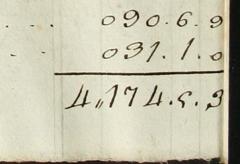 090.6.9
031.1.0
4,,174.5.3